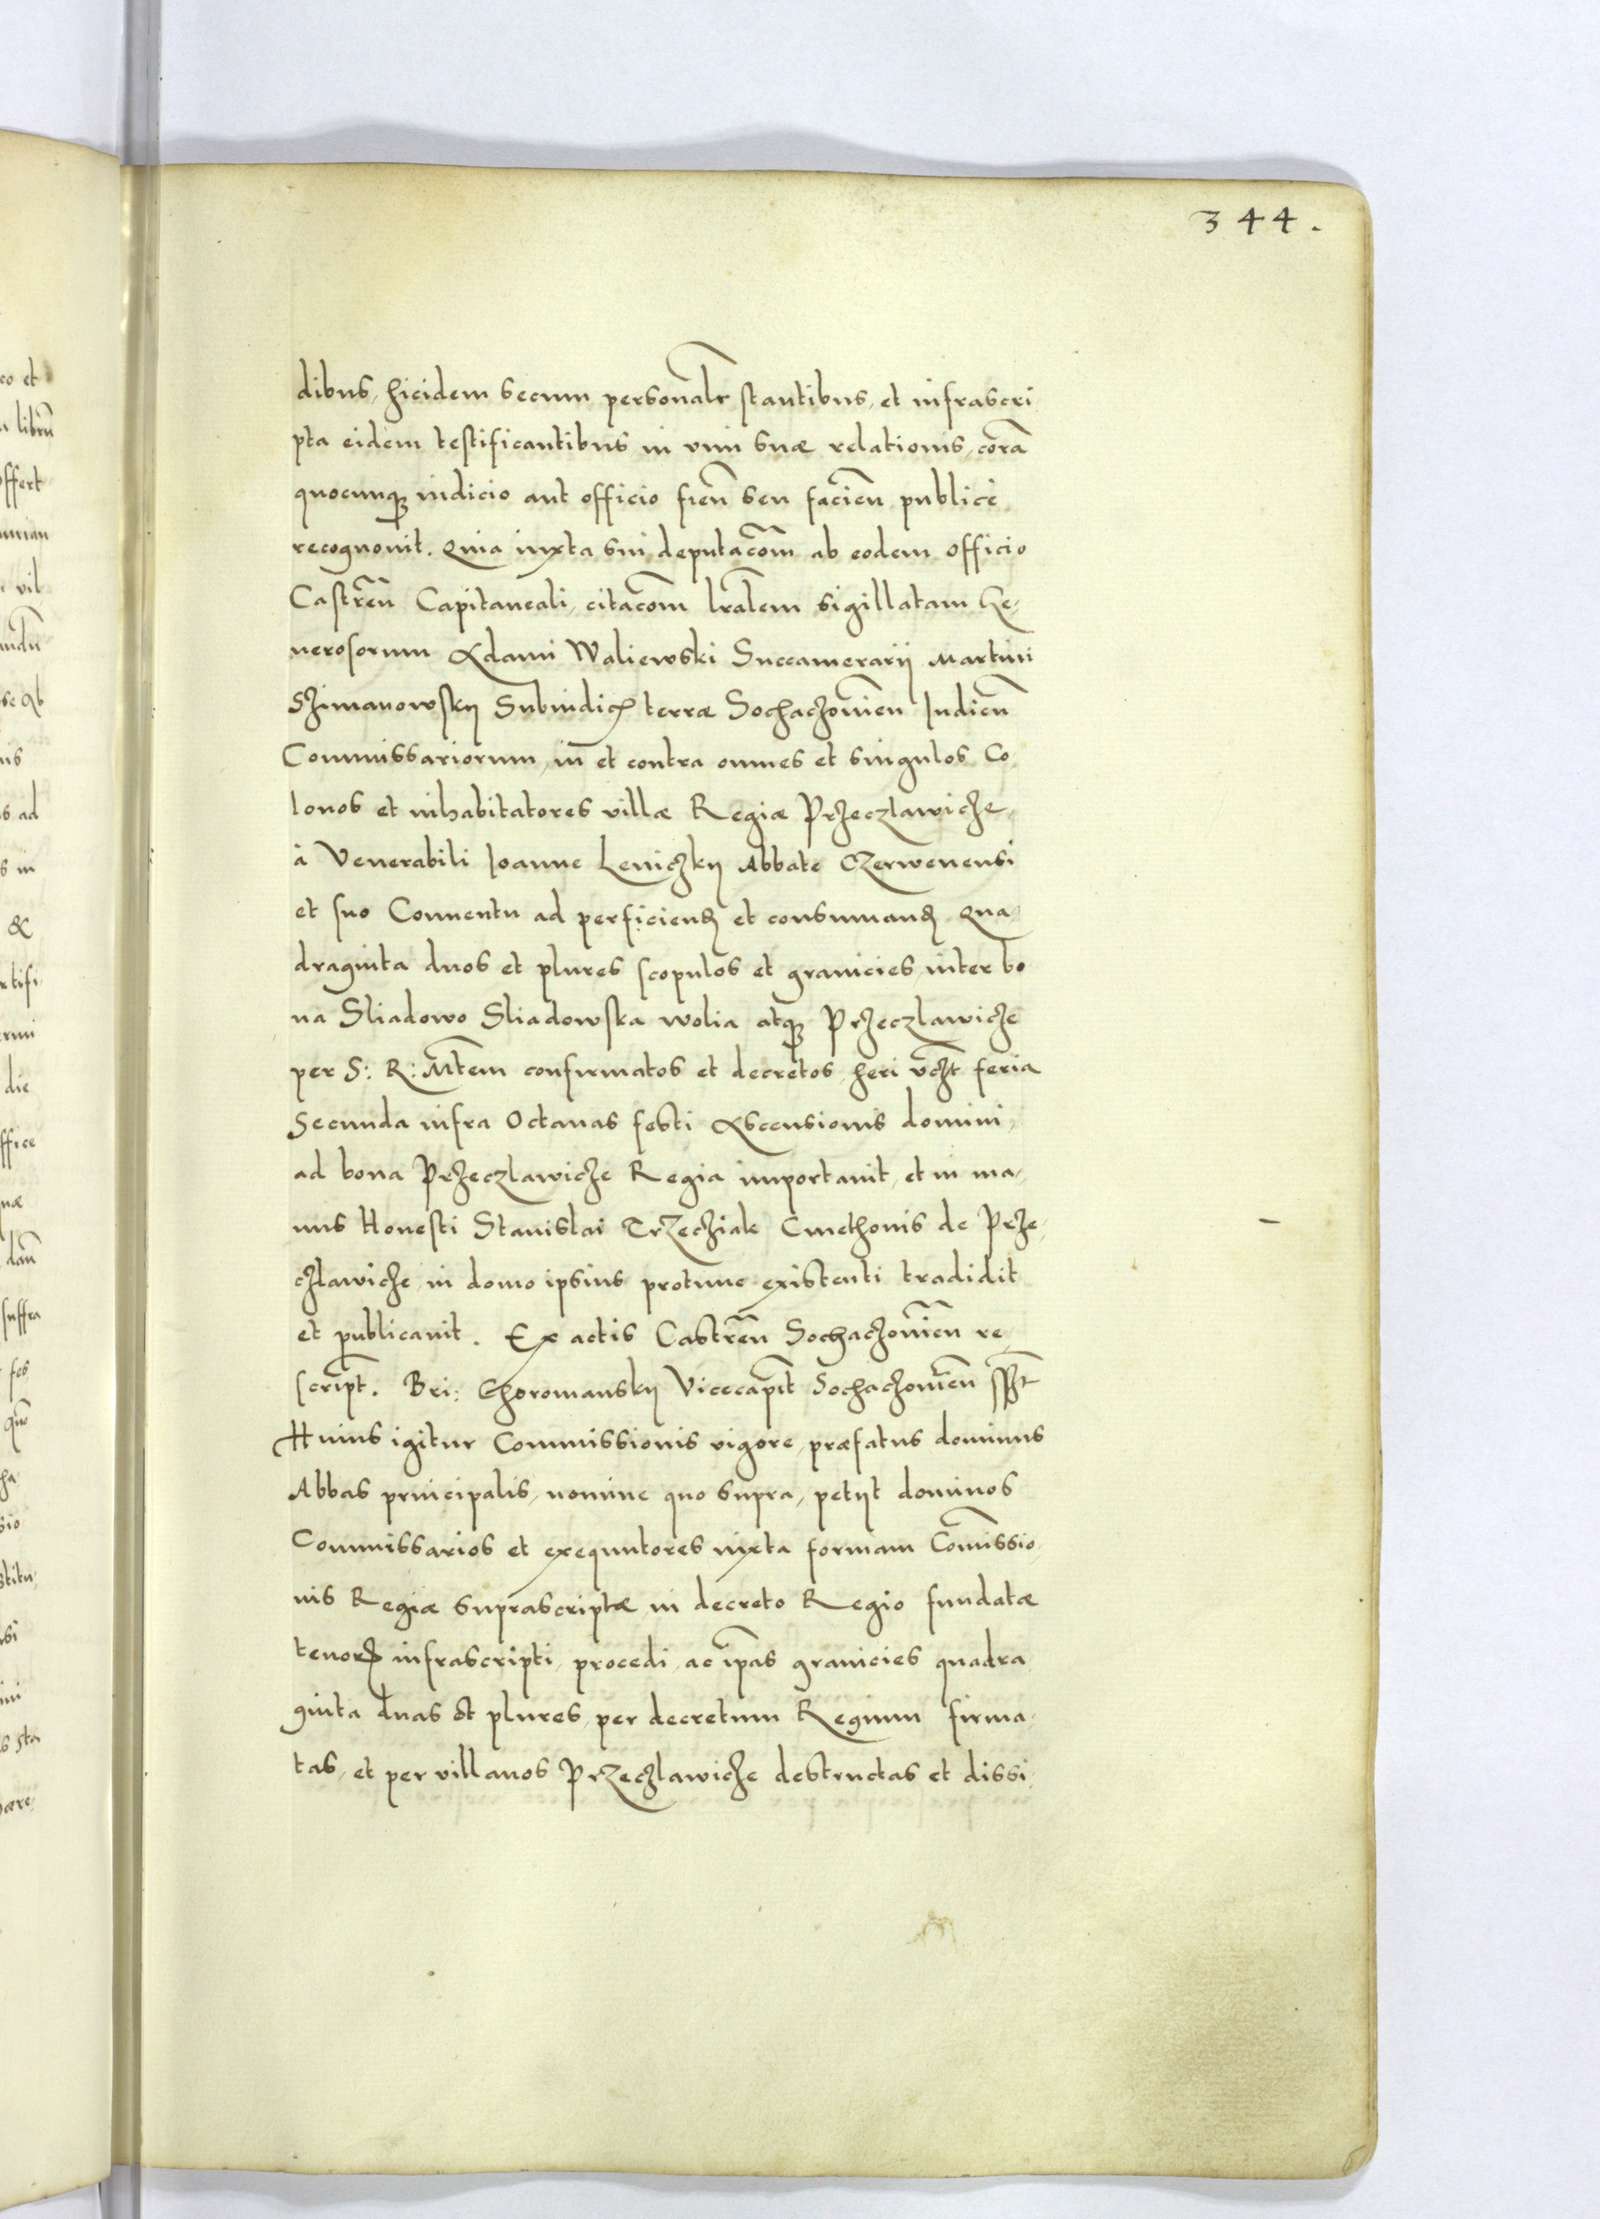 344.
dibus, hicidem secum personalr stantibus, et infrascri
pta eidem testificantibus in vim suæ relationis, corã
quocunq iudicio aut officio fieñ seu facieñ publicè
recognouit. Quia iuxta sui deputacõm ab eodem officio
Castreñ Capitaneali, citacõm lralem sigillatam Ge,
nerosorum Adami Waliewski Succamerarii Martini
Szimanowskij Subiudicz terræ Sochaczouieñ Iudicũ
Commissariorum, in et contra omnes et singulos Co
lonos et inhabitatores villæ Regiæ Przeczlawicze,
à Venerabili Ioanne Leniczkij Abbate Czerwenensi
et suo Conuentu ad perficiend et consumand Qua
draginta duos et plures scopulos et granicies, inter bo
na Sliadowo Sliadowska wolia atq Przeczlawicze
per S: R: Mtem confirmatos et decretos, heri vczt feria
Secunda infra Octauas festi Ascensionis domini,
ad bona Przeczlawicze Regia importauit, et in ma,
nus Honesti Stanislai Trzecziak Cmethonis de Prze,
czlawicze, in domo ipsius protunc existenti tradidit
et publicauit. Ex actis Castreñ Sochaczouieñ re,
script. Bri: Choromanskij Vicecapit Sochaczouieñ
Huius igitur Commissionis vigore, præfatus dominus
Abbas principalis, nomine quo supra, petijt dominos
Commissarios et exequutores iuxta formam Comissio,
nis Regiæ suprascriptæ in decreto Regio fundatæ
tenor infrascripti, procedi, ac ipas granicies quadra
ginta duas et plures, per decretum Regium firma,
tas, et per villanos Przeczlawicze destructas et dissi,